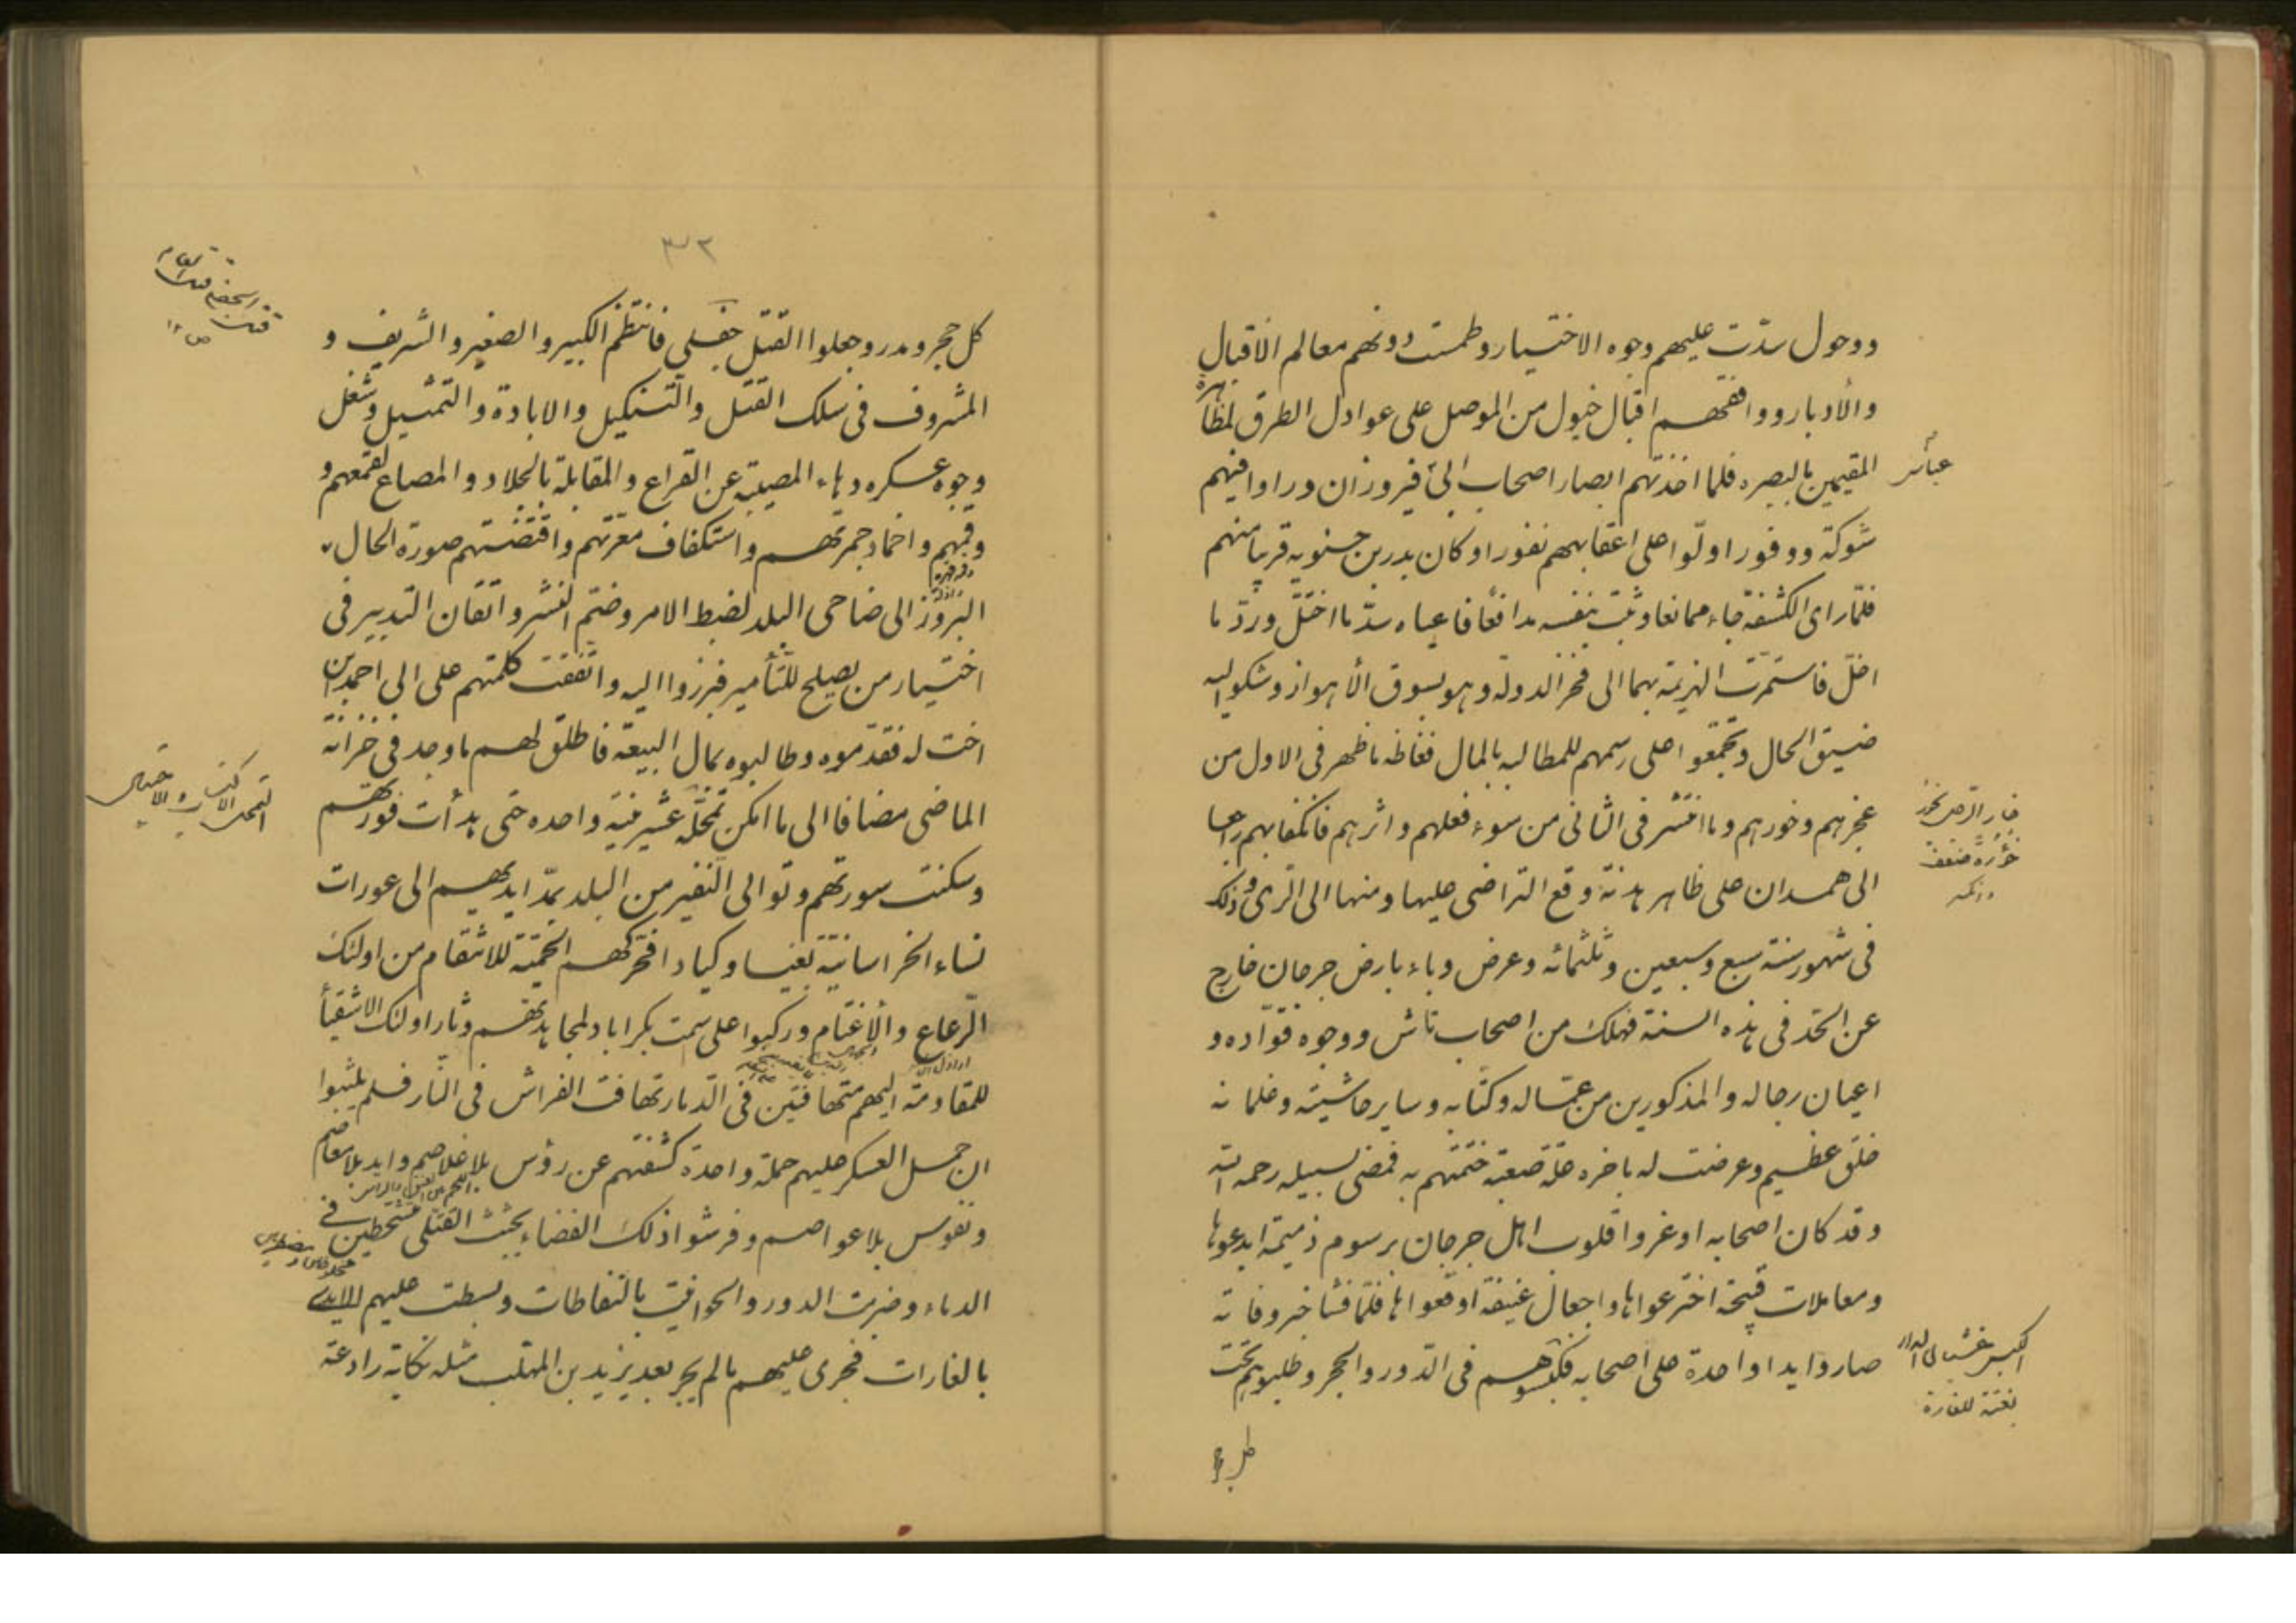 ووحول سدّت عليهم وجوه الاختيار وطمست دونهم معالم الاقبال
والأدبار ووافقهم اقبال خيول من الموصل على عوادل الطرق لمظاهرة
المقيمين بالبصره فلما اخذتهم ابصار اصحاب ابى فيروزان وراوا فيهم
شوكة ووفورا ولّوا على اعقابهم نفورا وكان بدر بن حسنويه قريبا منهم
فلمّا راى الكشفة جاء ممانعا وثبت بنفسه مدافعا فاعياه سدّ ما اختلّ وردّ ما
انحلّ فاستمرّت الهزيمة بهما الى فخر الدولة وهو بسوق الأهواز وشكوا اليه
ضيق الحال وتجمّعوا على رسمهم للمطالبه بالمال فغاظه ما ظهر فى الاول من
عجزهم وخورهم وما انتشر فى الثانى من سوء فعلهم واثرهم فانكفا بهم راجعا
الى همدان على ظاهر هدنة وقع التراضى عليها ومنها الى الرى وذلك
فى شهور سنة سبع وسبعين وثلثمائه وعرض وباء بارض جرجان خارج
عن الحد فى هذه السنة فهلك من اصحاب تاش ووجوه قوّاده و
اعيان رجاله والمذكورين من عمّاله وكتّابه وساير حاشيته وغلمانه
خلق عظيم وعرضت له باخره علّة صعبة ختمتهم به فمضى لسبيله رحمه الله
وقد كان اصحابه اوغروا قلوب اهل جرجان برسوم ذميمة ابدعوها
ومعاملات قبيحة اخترعوها واجعال عنيفة اوقعوها فلمّا فشا خبر وفاته
صاروا يدا واحدة على اصحابه فكبسوهم فى الدّور والحجر وطلبوهم تحت
خؤرة ضعف
بغتة للغارة
٣٢
كل حجر ومدر وجعلوا القتل جفلى فانتظم الكبير والصغير والشريف و
المشروف فى سلك القتل والتنكيل والابادة والتمثيل وشغل
وجوه عسكره دهاء المصيبة عن القراع والمقابلة بالجلاد والمصاع لقمعهم و
وقمهم واخماد جمرتهم واستكفاف معرّتهم واقتضتهم صورة الحال
البروز الى ضاحى البلد لضبط الامر وضمّ النشر واتقان التدبير فى
اختيار من يصلح للتأمير فبرزوا اليه واتفقت كلمتهم على ابى احمد ابن
اخت له فقدّموه وطالبوه بمال البيعة فاطلق لهم ما وجد فى خزانة
الماضى مضافا الى ما امكن تمحّله عشرينيّة واحده حتى هدأت فورتهم
وسكنت سورتهم وتوالى النفير من البلد بمدّ ايديهم الى عورات
نساء الخراسانيّة بغيا وكيادا فحرّكهم الحميّة للانتقام من اولئك
الرّعاع والأغتام وركبوا على سمت بكراباد لمجاهدتهم وثار اولئك الاشقيأ
للمقاومة اليهم متهافتين فى الدّمار تهافت الفراش فى النّار فلم يلبثوا
ان حمل العسكر عليهم حملة واحدة كشفتهم عن رؤس بلا غلاصم وايد بلا معاصم
ونفوس بلا عواصم وفرشوا ذلك الفضاء بجثث القتلى متشحّطين فى
الدماء وضربت الدور والحوانيت بالنفاطات وبسطت عليهم الايدى
بالغارات فجرى عليهم ما لم يجر بعد يزيد بن المهلّب مثله نكاية رادعة